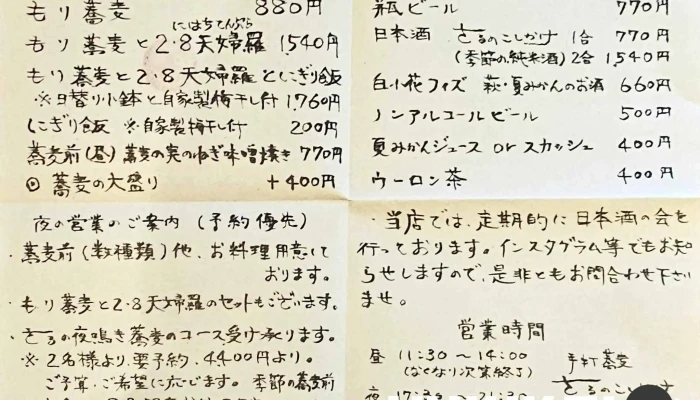 もり蕎麦 880円
にはちてんぷら
もり蕎麦と2・8天婦羅 1540円
もり蕎麦と2・8天婦羅とにぎり飯
※日替り小鉢と自家製梅干し付 1760円
にぎり飯 ※自家製梅干し付 200円
蕎麦前(昼) 蕎麦の実のねぎ味噌焼き 770円
◎ 蕎麦の大盛り +400円
瓶ビール 770円
日本酒 さるのこしかけ 1合 770円
(季節の純米酒) 2合 1540円
白小花フィズ 萩・夏みかんのお酒 660円
ノンアルコールビール 500円
夏みかんジュース or スカッシュ 400円
ウーロン茶 400円
夜の営業のご案内 (予約優先)
・蕎麦前(数種類)他、お料理用意して
おります。
・もり蕎麦と2・8天婦羅のセットもございます。
・さるの夜鳴き蕎麦のコース受け承ります。
※2名様より、要予約、4400円より。
ご予算・ご希望に応じます。季節の蕎麦前
・当店では、定期的に日本酒の会を
行っております。インスタグラム等でもお知
らせしますので、是非ともお問合わせ下さい
ませ。
営業時間
昼 11:30〜14:00
(なくなり次第終了)
手打蕎麦
さるのこしかけ
夜